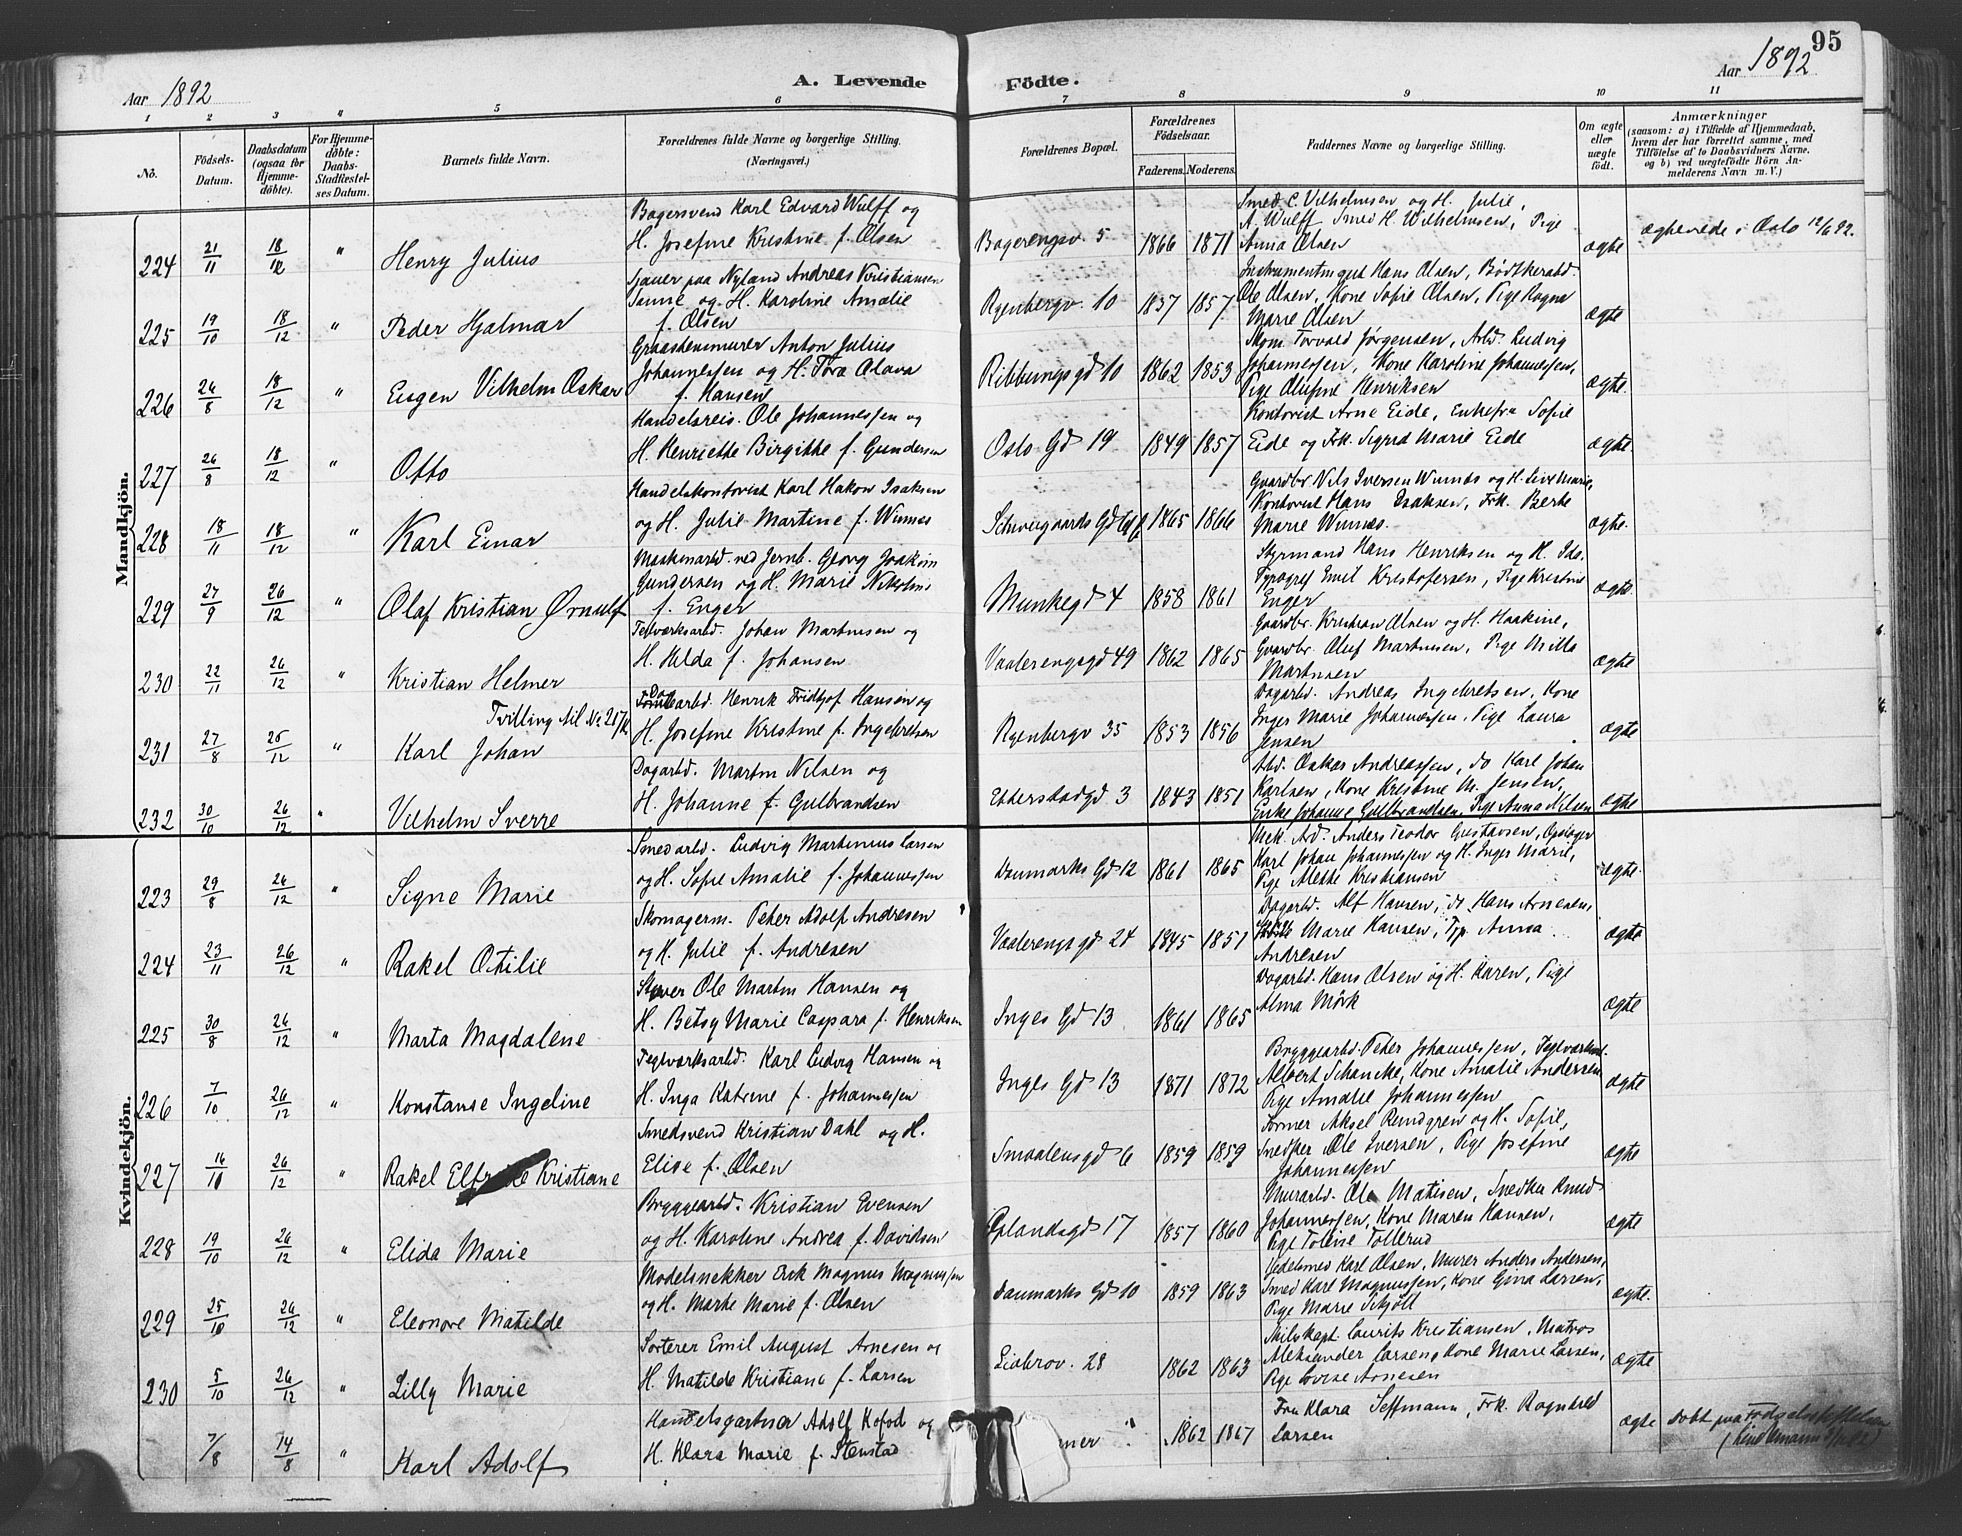 95
Aar 1892
A. Levende Födte.
Aar 1892
1 2 3 4 5 6 7 8 9 10 11
No.
Födsels-Datum.
Daabsdatum (ogsaa for Hjemme-döbte).
For Hjemme-döbte: Daabs-Stadfæstel-ses Datum.
Barnets fulde Navn.
Forældrenes fulde Navne og borgerlige Stilling.
(Næringsvei.)
Forældrenes Bopæl.
Forældrenes Födselsaar.
Faderens. Moderens.
Faddernes Navne og borgerlige Stilling.
Om ægte eller uægte födt.
Anmærkninger
(saasom: a) i Tilfælde af Hjemmedaab, hvem der har forrettet samme, med Tilföielse af to Daabsvidners Navne. og b) ved uægtefödte Börn An-melderens Navn m. V.)
Mandkjön.
224 21/11 18/12 " Henry Julius
Bagersvend Karl Edvard Wulff og
H. Josefine Kristine f. Olsen
Bagerengsv. 5 1866 1871
Smed C. Vilhelmsen og H. Julie,
A. Wulff Smed H. Wilhelmsen, Pige
Anna Olsen
ægte
ægteviede i Oslo 12/6 92.
225 19/10 18/12 " Peder Hjalmar
Sjauer paa Nyland Andreas Kristiansen
Sanne og H. Karoline Amalie
f. Olsen
Ryenbergv. 10 1857 1857
Instrumentmager Hans Olsen, Bödtkerarbd.
Ole Olsen, Kone Sofie Olsen, Pige Ragna
Marie Olsen
ægte
226 26/8 18/12 " Eugen Vilhelm Oskar
Graastensmurer Anton Julius
Johannessen og H. Tora Olava
f. Hansen
Ribbungsgd 10 1862 1853
Skom. Torvald Jörgensen, Arbd. Ludvig
Johannessen, Kone Karoline Johannessen,
Pige Olufine Henriksen
ægte.
227 26/8 18/12 " Otto
Handelsreis. Ole Johannessen og
H. Henriette Birgitte f. Gundersen
Oslo Gd 19 1849 1857
Kontorist Arne Eide, Enkefru Sofie
Eide og Frk. Sigrid Marie Eide
ægte.
228 18/11 18/12 " Karl Einar
Handelskontorist Karl Hakon Isaksen
og H. Julie Martine f. Winnes
Schweigaards Gd 1865 1866
Gaardbr Nils Iversen Winnes og H. Live Marie,
Kontorist Hans Isaksen, Frk. Berte
Marie Winnæs.
ægte.
229 27/9 26/12 " Olaf Kristian Ørnulf
Maskinarbd. ved Jernb. Georg Joakim
Gundersen og H. Marie Nikoline
f. Enger
Munkegd 4 1858 1861
Styrmand Hans Henriksen og H. Ida.
Typograf Emil Kristofersen, Pige Kristine
Enger
ægte.
230 22/11 26/12 " Kristian Helmer
Teglværksarbd. Johan Martinsen og
H. Hilda f. Johansen
Vaalerengsgd 49 1862 1865
Gaardbr. Kristian Olsen og H. Haakine,
Gaardbr. Oluf Martinsen, Pige Milla
Martinsen
ægte
231 27/8 25/12 " Tvilling til No 207 K
Karl Johan
Dagarbd. Henrik Fridtjof Hansen og
H. Josefine Kristine f. Ingebretsen
Ryenbergv 35 1853 1856
Dagarbd. Andreas Ingebretsen, Kone
Inger Marie Johannessen, Pige Laura
Jensen
ægte
232 30/10 26/12 " Vilhelm Sverre
Dagarbd. Martin Nilsen og
H. Johanne f. Gulbrandsen
Etterstadgd 3 1843 1851
Arbd. Oskar Andreassen, do Karl Johan
Karlsen, Kone Kristine M. Jensen,
Enke Johanne Gulbrandsen, Pige Anna Nilsen
ægte
Kvindekjön.
223 29/8 26/12 " Signe Marie
Smedarbd. Ludvig Martinius Larsen
og H. Sofie Amalie f. Johannessen
Danmarks Gd 12 1861 1865
Mek. Arb. Anders Teodor Gustavsen, Opdager
Karl Johan Johannessen og H. Inger Marie,
Pige Alette Kristiansen
ægte.
224 23/11 26/12 " Rakel Otilie
Skomagerm. Peter Adolf Andresen
og H. Julie f. Andresen
Vaalerengsgd 24 1845 1851
Dagarbd. Alf Hansen, do Hans Arnesen,
Marie Hansen, Anna
Andresen
ægte
225 30/8 26/12 " Marta Magdalene
Stuver Ole Martin Hansen og
H. Betsy Marie Caspara f. Henriksen
Inges Gd 13 1861 1865
Dagarbd. Hans Olsen og H. Karen, Pige
Alma Mörk
ægte
226 7/10 26/12 " Konstanse Ingeline
Teglværksarbd. Karl Ludvig Hansen og
H. Inga Katrine f. Johannessen
Inges Gd 13 1871 1872
Bryggearbd. Peter Johannessen, Teglværksarbd.
Albert Schancke, Kone Amalie Andersen
Pige Amalie Johannessen
ægte
227 16/10 26/12 " Rakel Elfride Kristiane
Smedsvend Kristian Dahl og H.
Elise f. Olsen
Smaalensgd 6 1859 1859
Former Aksel Rundgren og H. Sofie,
Snedker Ole Iversen, Pige Josefine
Johannessen
ægte
228 19/10 26/12 " Elida Marie
Bryggearbd. Kristian Evensen
og H. Karoline Andrea f. Davidsen
Oplandsgd 17 1857 1860
Murarbd. Ole Matisen, Snedker Knud
Johannessen, Kone Maren Hansen,
Pige Toline Tollerud
ægte
229 25/10 26/12 " Eleonore Matilde
Modelsnekker Erik Magnus Magnussen
og H. Marte Marie f. Olsen
Danmarks Gd 10 1859 1863
Jedelsmed Karl Olsen, Murer Anders Andersen,
Smed Karl Magnussen, Kone Gina Larsen,
Pige Marie Skjöll
ægte.
230 5/10 26/12 " Lilly Marie
Sorterer Emil August Arnesen og
H. Matilde Kristiane f. Larsen
Liabrov. 28 1862 1863
Skibskapt. Laurits Kristiansen, Matros
Aleksander Larsen, Kone Marie Larsen,
Pige Lovise Arnesen
ægte
7/8 14/8 " Karl Adolf
Handelsgartner Adolf Kofod og
H. Klara Marie f. Stenstad
1862 1867
Fru Klara Seffmann, Frk. Ragnhild
Larsen
ægte
Döbt paa Födselsstiftelsen